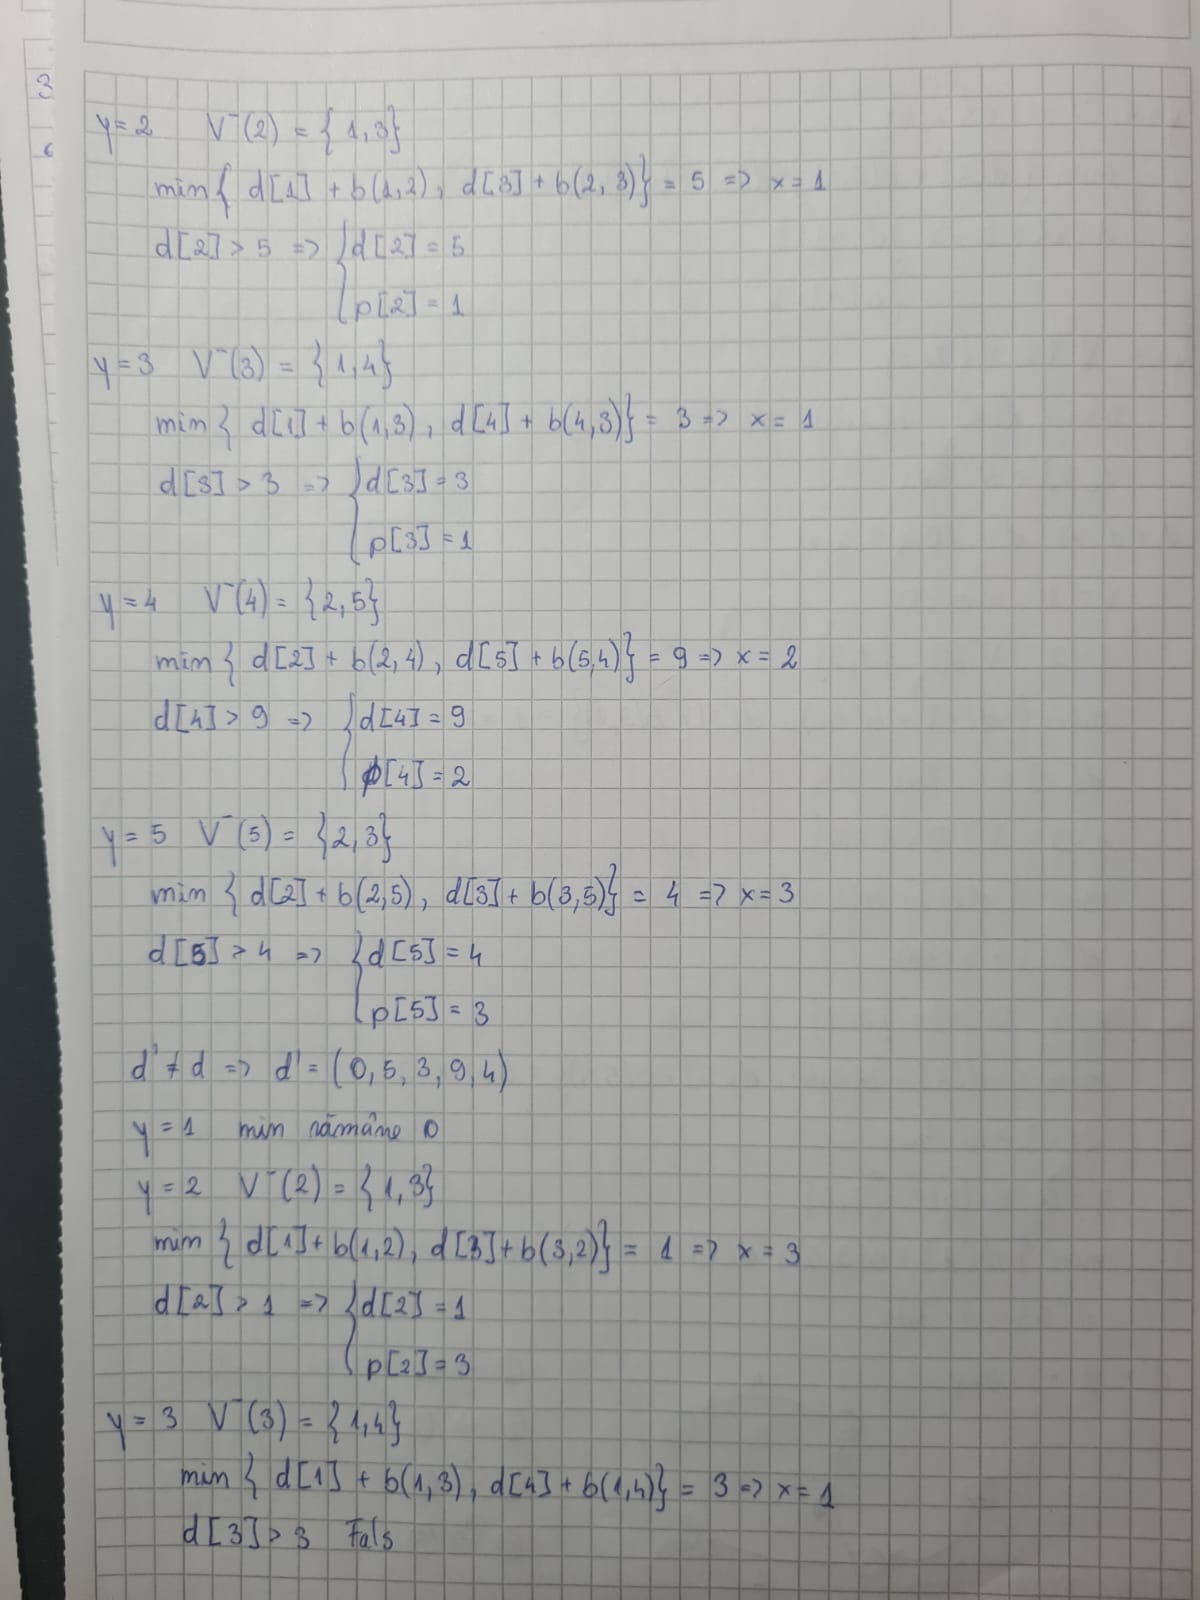 3
6
y = 2 V⁻(2) = { 1, 3}
min { d[1] + b(1,2), d[3] + b(2, 3)} = 5 => x = 1
d[2] > 5 => { d[2] = 5
p[2] = 1
y = 3 V⁻(3) = { 1, 4}
min { d[1] + b(1,3), d[4] + b(4,3)} = 3 => x = 1
d[3] > 3 => { d[3] = 3
p[3] = 1
y = 4 V⁻(4) = { 2, 5}
min { d[2] + b(2,4), d[5] + b(5,4)} = 9 => x = 2
d[4] > 9 => { d[4] = 9
p[4] = 2
y = 5 V⁻(5) = { 2, 3}
min { d[2] + b(2,5), d[3] + b(3,5)} = 4 => x = 3
d[5] > 4 => { d[5] = 4
p[5] = 3
d' ≠ d => d' = (0, 5, 3, 9, 4)
y = 1 min rămâne 0
y = 2 V⁻(2) = { 1, 3}
min { d[1] + b(1,2), d[3] + b(3,2)} = 1 => x = 3
d[2] > 1 => { d[2] = 1
p[2] = 3
y = 3 V⁻(3) = { 1, 4}
min { d[1] + b(1,3), d[4] + b(1,4)} = 3 => x = 1
d[3] > 3 Fals